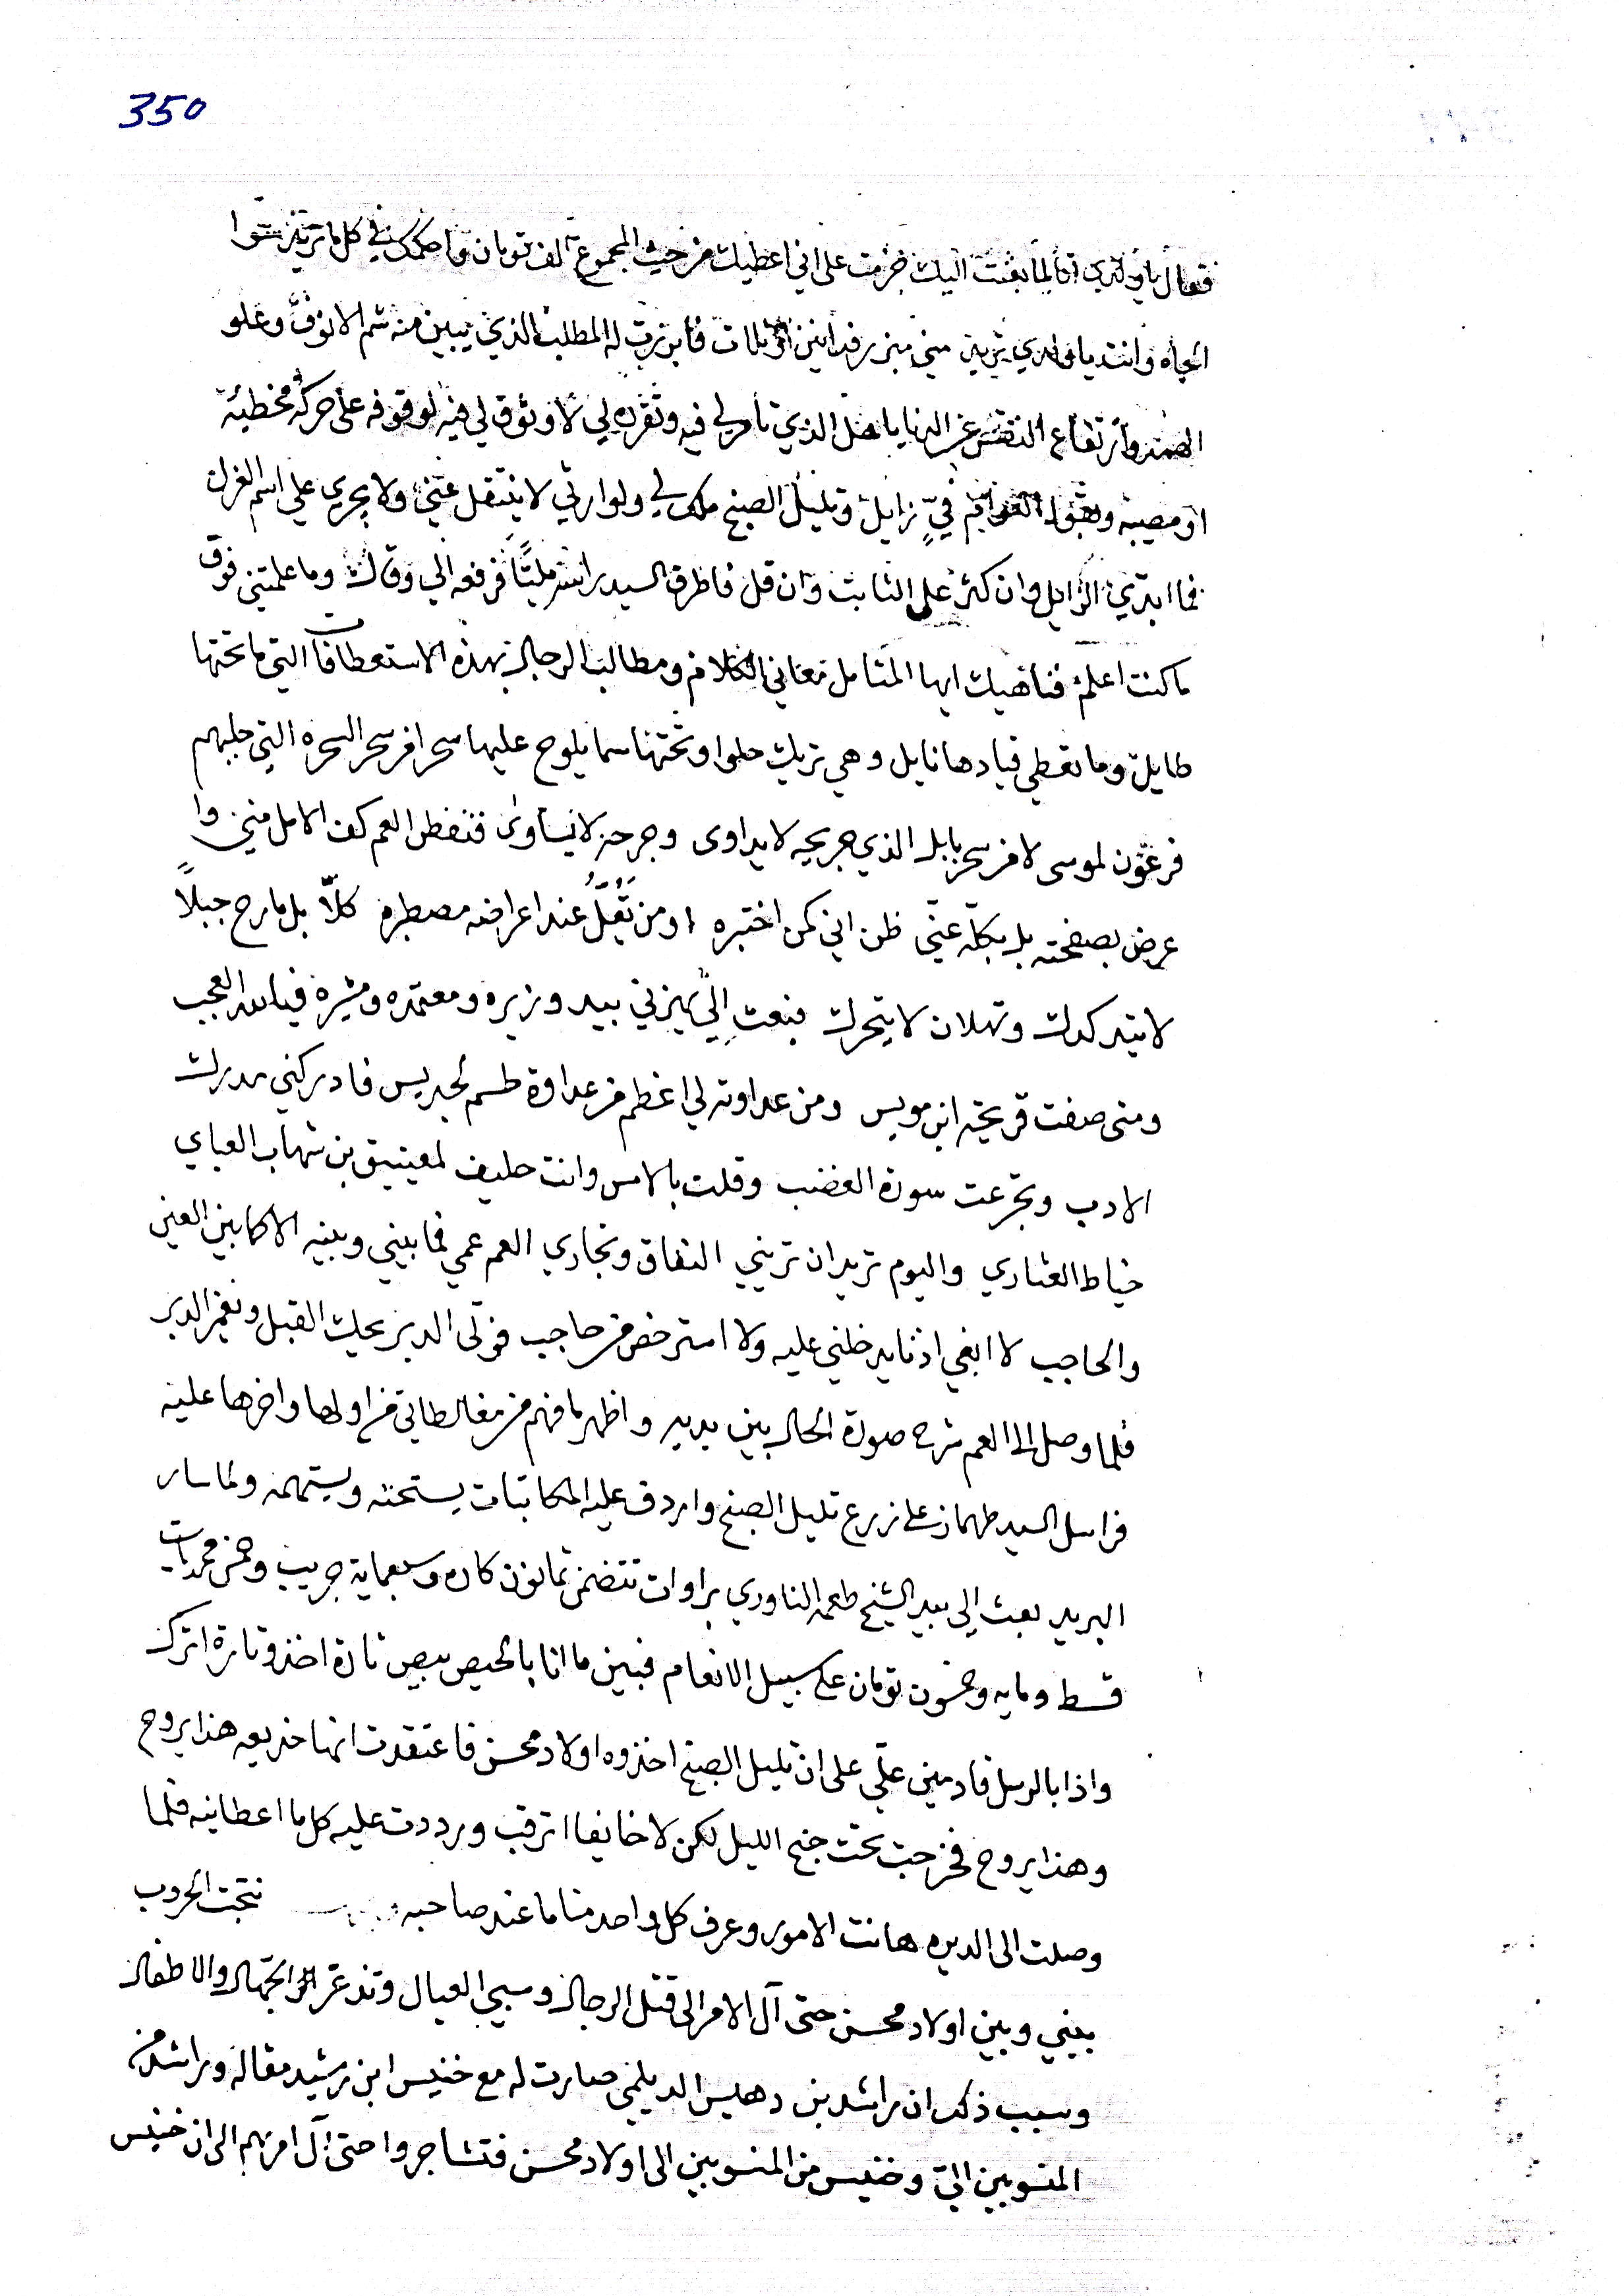 350
فقال يا ولدي انا لما بعثت اليك خرمت على اني اعطيك من حيث المجموع الف تومان واحكمك في كل ما تريد سوا
الجاه وانت يا ولدي تريد مني فابرزت له المطلب الذي يبين منه شم الانوف وعلو
الهمم وارتفاع النفس عن الدنايا هل الذي تامر لي فيه وتقرره لي لا وثوق لي فيه لوقوفه على حركة مخطيئة
او مصيبه في زايل وتليل الصبخ ملك لي ولوارثي لا ينتقل عني ولا يجري علي اسم العزل
فما ابتري الزايل وان كثر على الثابت وان قل فاطرق السيد راشد مليًّا فرفعه الي وقال وما علمتني فوق
ما كنت اعلم فناهيك ايها المتامل معاني الكلام ومطالب الرجال بهذه الاستعطافات التي ما تحتها
طايل وما تعطي قيادها نايل وهي تريك حلوا وتحتها سما يلوح عليها سحرا من سحر السحره التي جلبهم
فرعون لموسى لا من سحر بابل الذي جريحه لا يداوى وجرحه لا يساوى فنفض العم كف الامل مني وا
عرض بصفحته بل بكله عني ظن اني كمن اختبره او من تقل عند اعراضه مصطبره كلّا بل مارح جبلاً
لا يتدكدك وثهلان لا يتحرك فبعث اليّ يهزني بيد وزيره ومعتمده ومشيره فيا لله العجب
ومتى صفت قريحة ابن مويس ومن عداوته لي اعظم من عداوة طسم لجديس فادركني مدرك
الادب وتجرعت سورة الغضب وقلت بالامس وانت حليف لمعيتيق بن شهاب العباي
خياط العشاري واليوم تريد ان تريني النفاق وتجاري العم عمي فما بيني وبينه الا كما بين العين
والحاجب لا ابغي اذنا يدخلني عليه ولا استرخص من حاجب فولى الدبر يحك القبل ويغمز الدبر
فلما وصل الى العم شرح صورة الحال بين يديه واظهر ما فهم من مغالطاتي من اولها واخرها عليه
فراسل السيد طهماز على زرع تليل الصبخ واردف عليه المكاتبات يستحثه ويستمهمه ولما سار
البريد بعث الي بيد الشيخ طعمه الناوري براوات تتضمن ثمانون كاره وسبعماية جريب وخمس محمديات
قسط وماية وخمسون تومان على سبيل الانعام فبين ما انا بالحيص بيص تارة اخذ وتارة اترك
واذا بالرسل قادمين علي على ان تليل الصبخ اخذوه اولاد محسن فاعتقدت انها خديعه هذا يروح
وهذا يروح فخرجت تحت جنح الليل لكن لا خايفا اترقب ورددت عليه كل ما اعطانيه فلما
وصلت الى الديره هانت الامور وعرف كل واحد منا ما عند صاحبه نتجت الحروب
بيني وبين اولاد محسن حتى آل الامر الى قتل الرجال وسبي العيال وتذعر الجهال والاطفال
وسبب ذلك ان راشد بن دهليس الديلمي صارت له مع خنيس ابن رشيد مقاله وراشد من
المنسوبين اليّ وخنيس من المنسوبين الى اولاد محسن فتشاجروا حتى آل امرهم الى ان خنيس